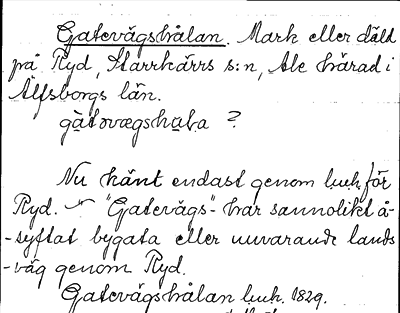 Gatevägshålan. Mark eller däld
på Ryd, Starrkärrs s:n, Ale härad i
Älfsborgs län.
gàtovægshula ?
Nu känt endast genom luch för
Ryd. "Gatevägs"- har sannolikt å-
-syftat bygata eller nuvarande lands
-väg genom Ryd.
Gatevägshålan luch. 1829.